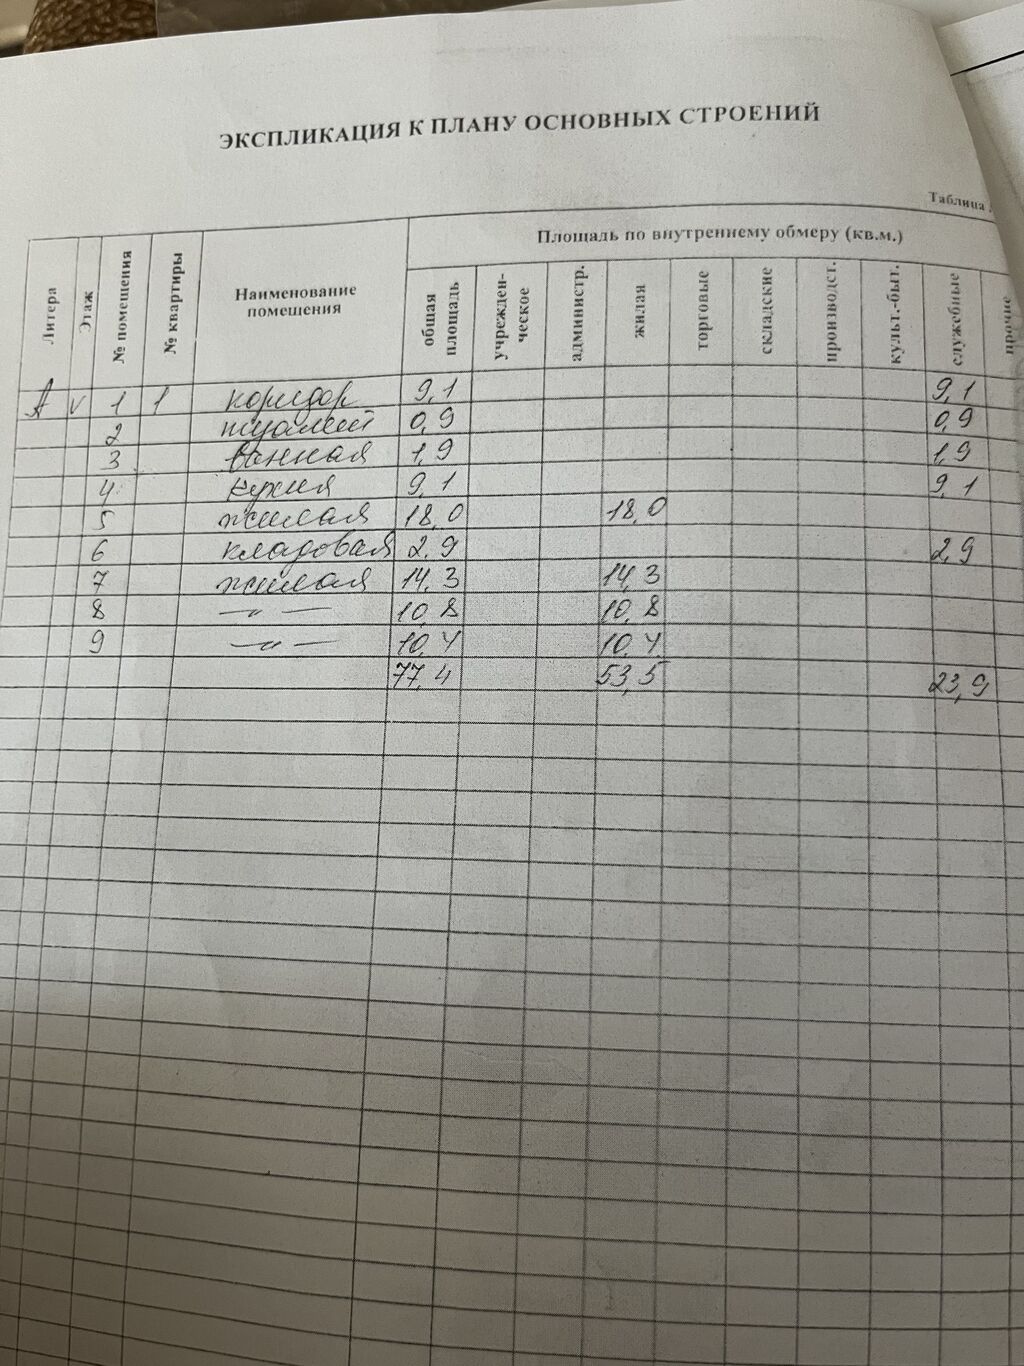 ЭКСПЛИКАЦИЯ К ПЛАНУ ОСНОВНЫХ СТРОЕНИЙ
Таблица
Литера Этаж № помещения № квартиры Наименование помещения Площадь по внутреннему обмеру (кв.м.)
общая площадь учрежден-ческое администр. жилая торговые складские производст. культ.-быт. служебные прочие
А V 1 1 коридор 9,1 9,1
2 туалет 0,9 0,9
3 ванная 1,9 1,9
4 кухня 9,1 9,1
5 жилая 18,0 18,0
6 кладовая 2,9 2,9
7 жилая 14,3 14,3
8 —〃— 10,8 10,8
9 —〃— 10,4 10,4
77,4 53,5 23,9